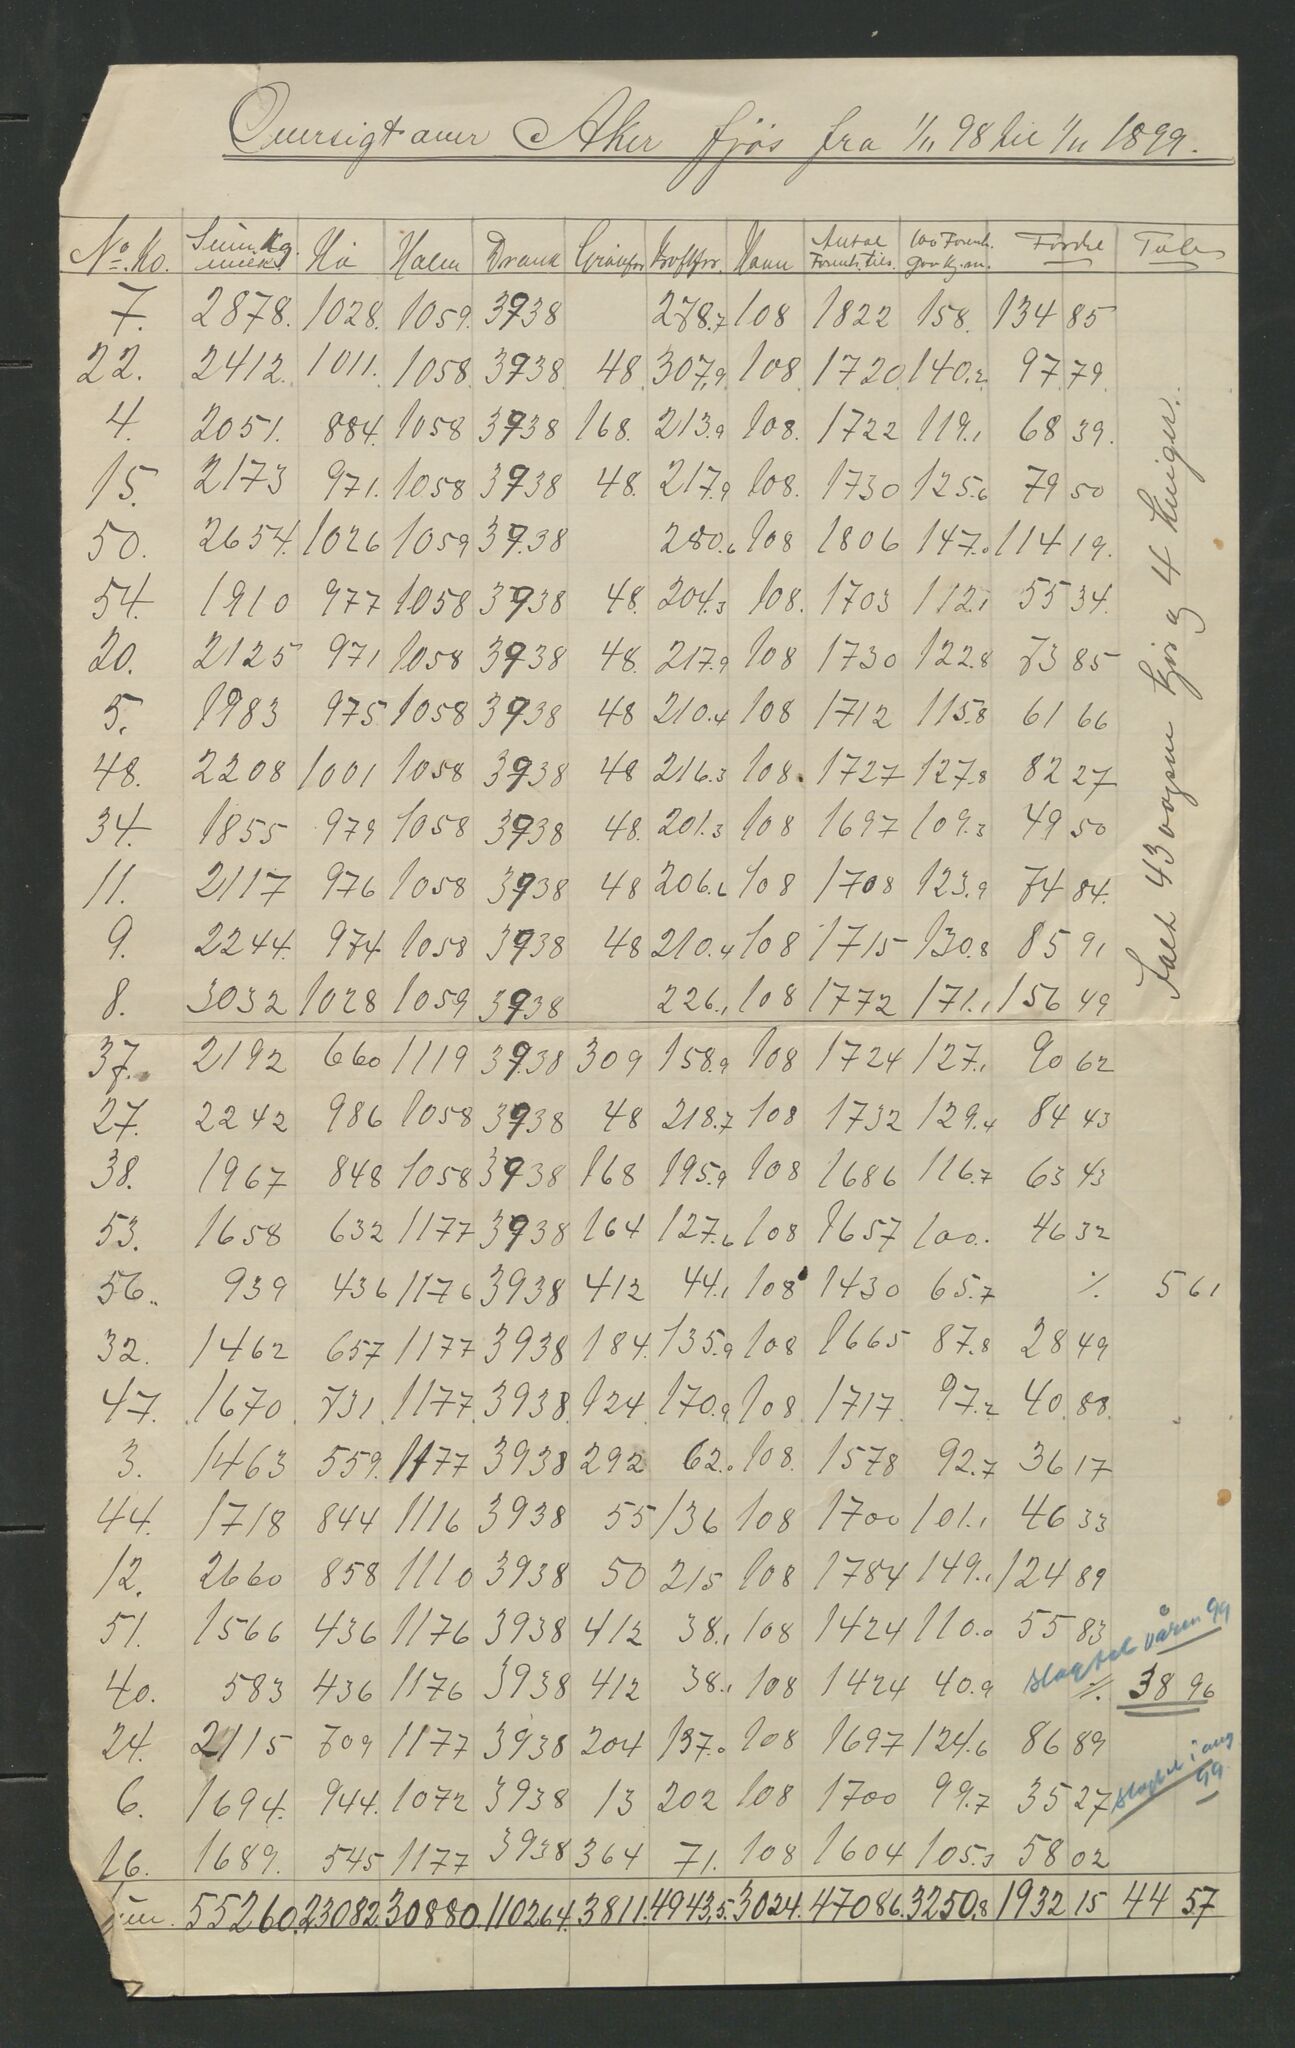 Oversigt over Aker fjøs fra 1/11 98 til 1/11 1899.
No. Ko. Sum Kg. melk Hø Halm Drank Grønfor Kraftfor. Havn Antal Forenh. tils. 100 Forenh. gav kg. m. Fordel Tab
7. 2878. 1028. 1059. 3938 278.7 108 1822 158. 134 85
22. 2412. 1011. 1058. 3938 48. 307.9 108 1720 140.2 97 79.
4. 2051. 884. 1058 3938 168. 213.9 108. 1722 119.1 68 39.
15. 2173 971. 1058 3938 48. 217.9 108. 1730 125.6 79 50
50. 2654. 1026 1059 3938 280.6 108 1806 147.0 114 19.
54. 1910 977 1058 3938 48. 204.3 108. 1703 112.1 55 34.
20. 2125 971 1058 3938 48. 217.9 108 1730 122.8 73 85
5. 1983 975 1058 3938 48 210.4 108 1712 115.8 61 66
48. 2208 1001 1058 3938 48 216.3 108. 1727 127.8 82 27
34. 1855 979 1058 3938 48. 201.3 108 1697 109.3 49 50
11. 2117 976 1058 3938 48 206.6 108 1708 123.9 74 84.
9. 2244. 974 1058 3938 48 210.4 108 1715 130.8 85 91
8. 3032 1028 1059 3938 226.1 108 1772 171.1 156 49
37. 2192 660 1119 3938 309 158.9 108 1724 127.1 90 62
27. 2242 986 1058 3938 48 218.7 108 1732 129.4 84 43
38. 1967 848 1058 3938 168 195.9 108 1686 116.7 63 43
53. 1658 632 1177 3938 164 127.6 108 1657 100. 46 32
56. 939 436 1176 3938 412 44.1 108 1430 65.7 ⁒ 5 61
32. 1462 657 1177 3938 184. 135.9 108 1665 87.8 28 49
47. 1670. 731. 1177. 3938. 124. 170.9 108. 1717. 97.2 40. 88.
3. 1463 559. 1177 3938 292 62.0 108. 1578 92.7 36 17
44. 1718 844 1116 3938 55 136 108 1700 101.1 46 33
12. 2660 858 1110 3938 50 215 108 1784 149.1 124 89
51. 1566 436 1176 3938 412 38.1 108 1424 110.0 55 83
slagtet våren 99
40. 583 436 1176 3938 412 38.1 108 1424 40.9 ⁒ 38 96
24. 2115 709 1177 3938 204 137.0 108 1697 124.6 86 89
slagtet i aug 99
6. 1694. 944. 1072 3938 13 202 108 1700 99.7 35 27
16. 1689. 545 1177 3938 364 71. 108 1604 105.3 58 02
Sum. 55260. 23082 30880. 110264. 3811. 4943,5. 3024. 47086. 3250.8 1932 15 44 57
Salt 43 voxne kjør og 4 kviger.